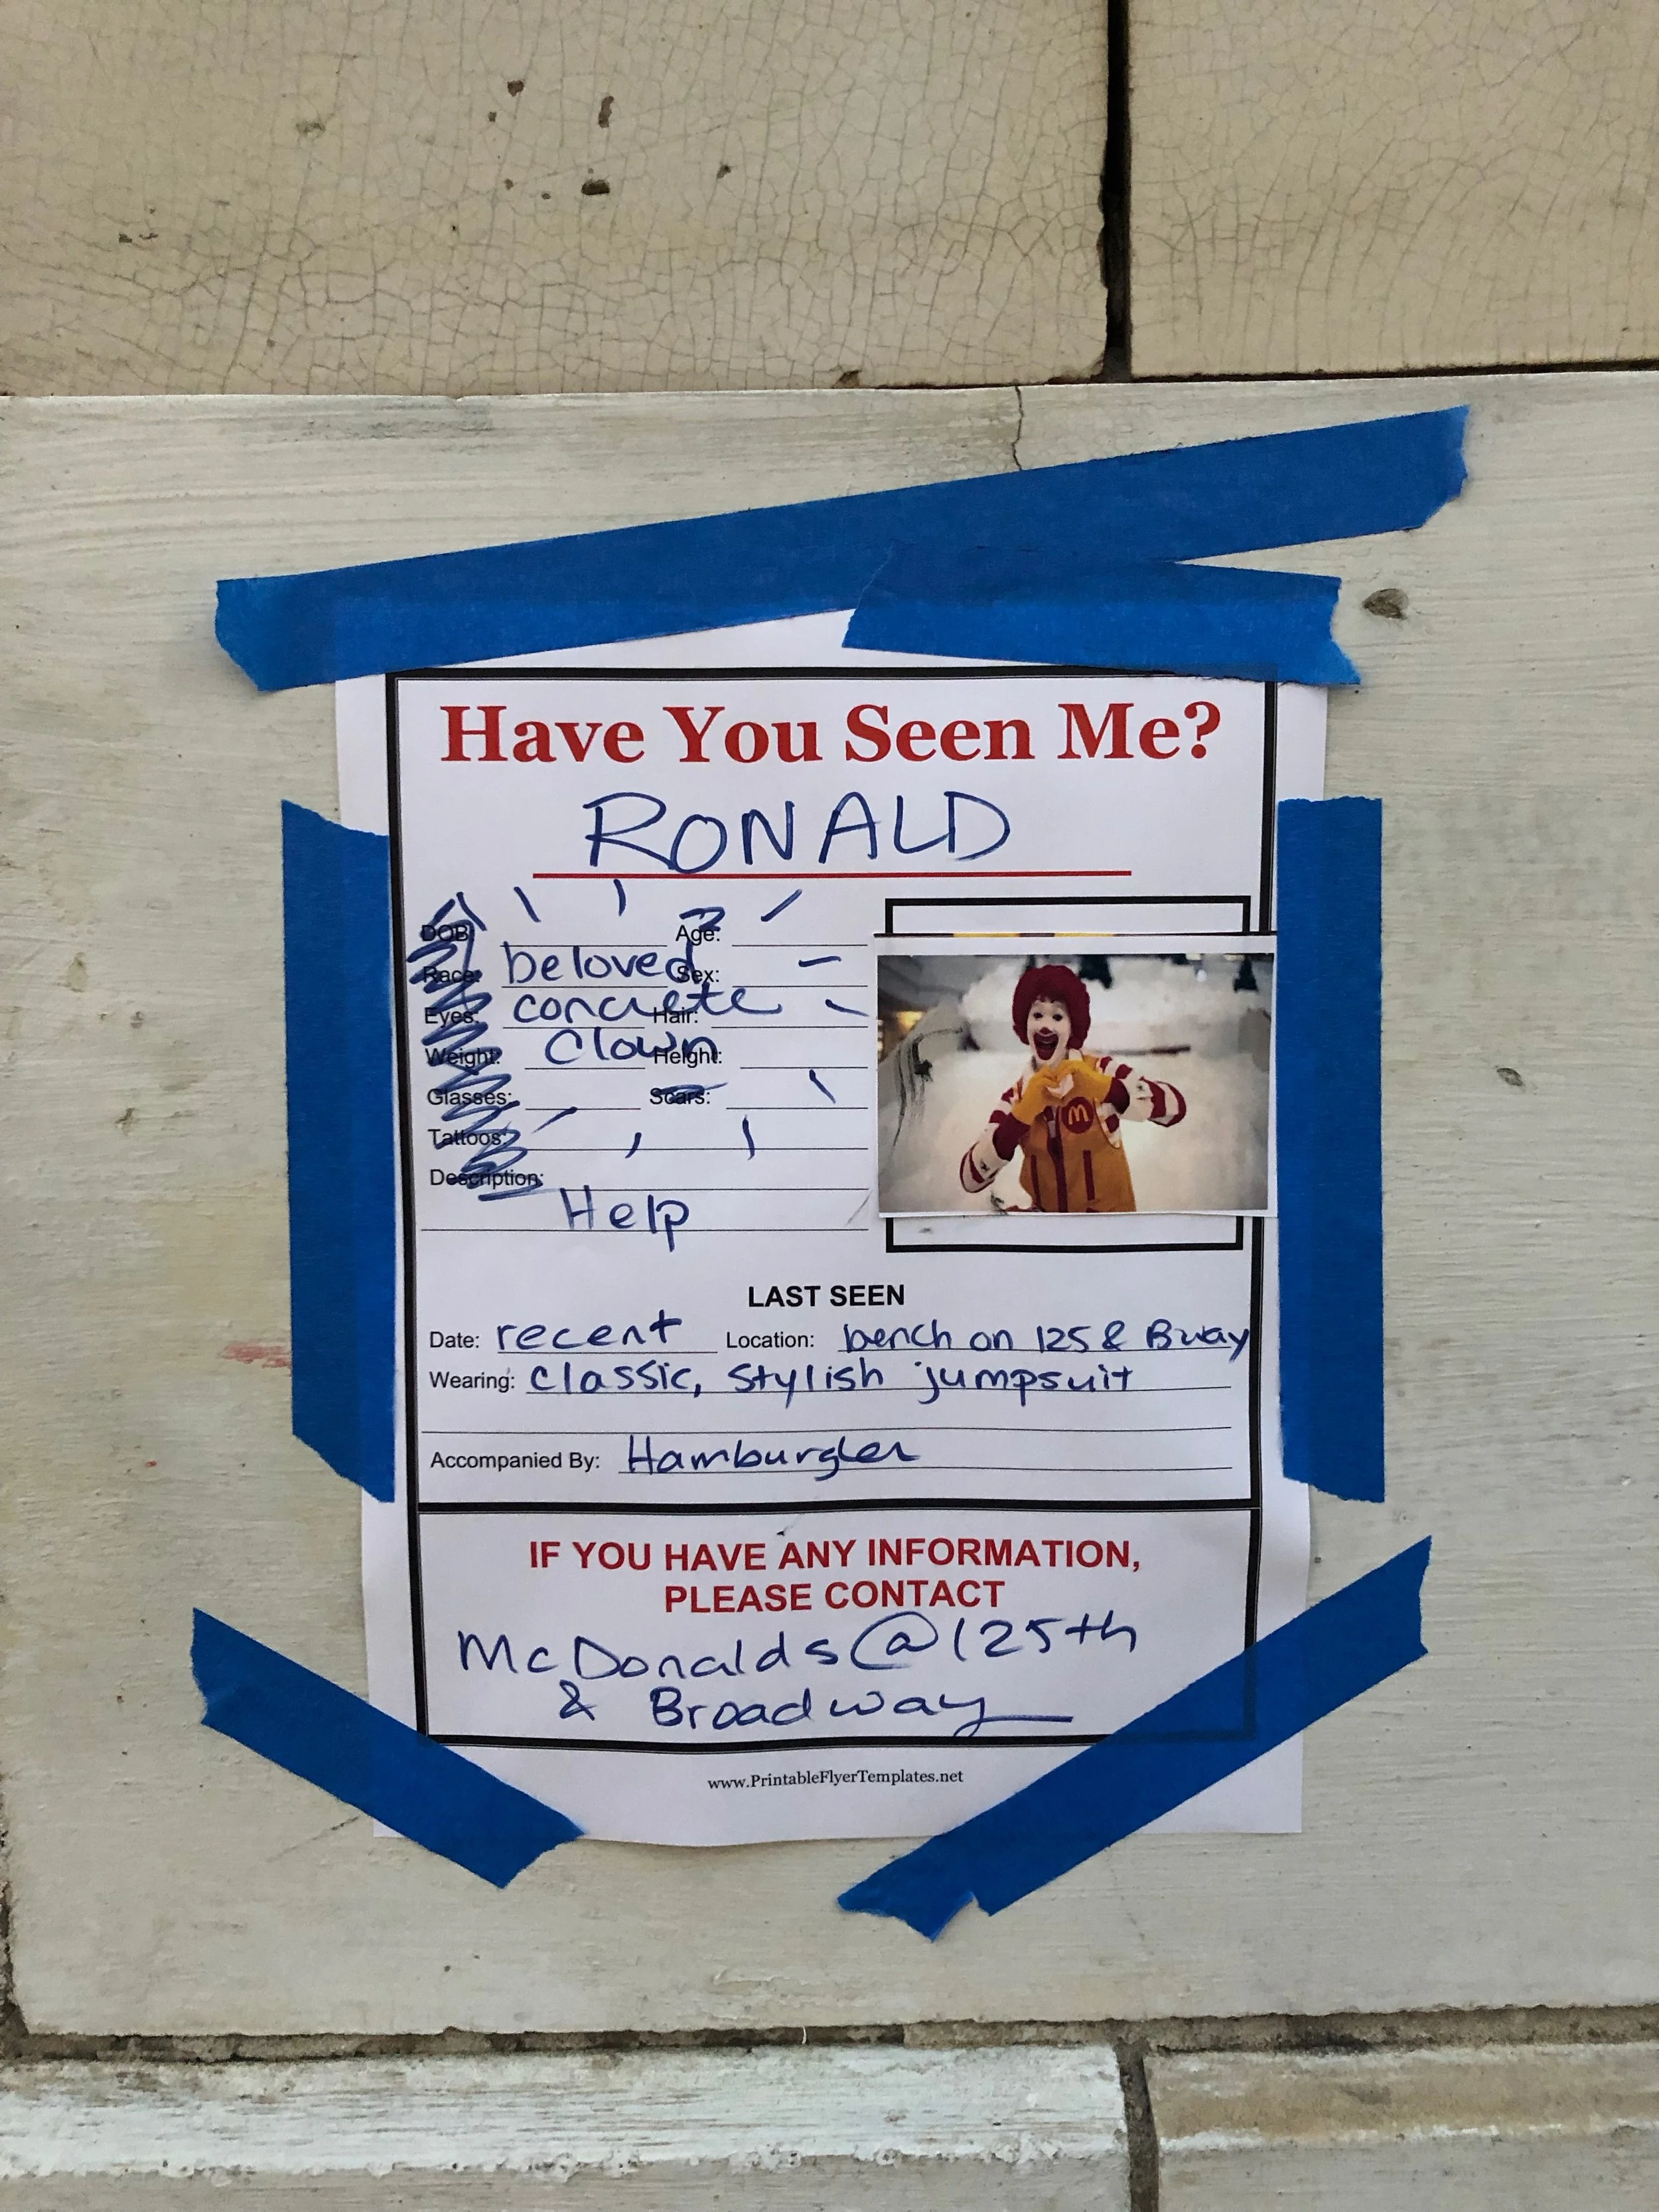 Have You Seen Me?
RONALD
DOB: Age:
Race: beloved Sex:
Eyes: concrete Hair:
Weight: Clown Height:
Glasses: Scars:
Tattoos:
Description:
Help
LAST SEEN
Date: recent Location: bench on 125 & Bway
Wearing: classic, stylish jumpsuit
Accompanied By: Hamburgler
IF YOU HAVE ANY INFORMATION,
PLEASE CONTACT
McDonalds @ 125th
& Broadway
www.PrintableFlyerTemplates.net